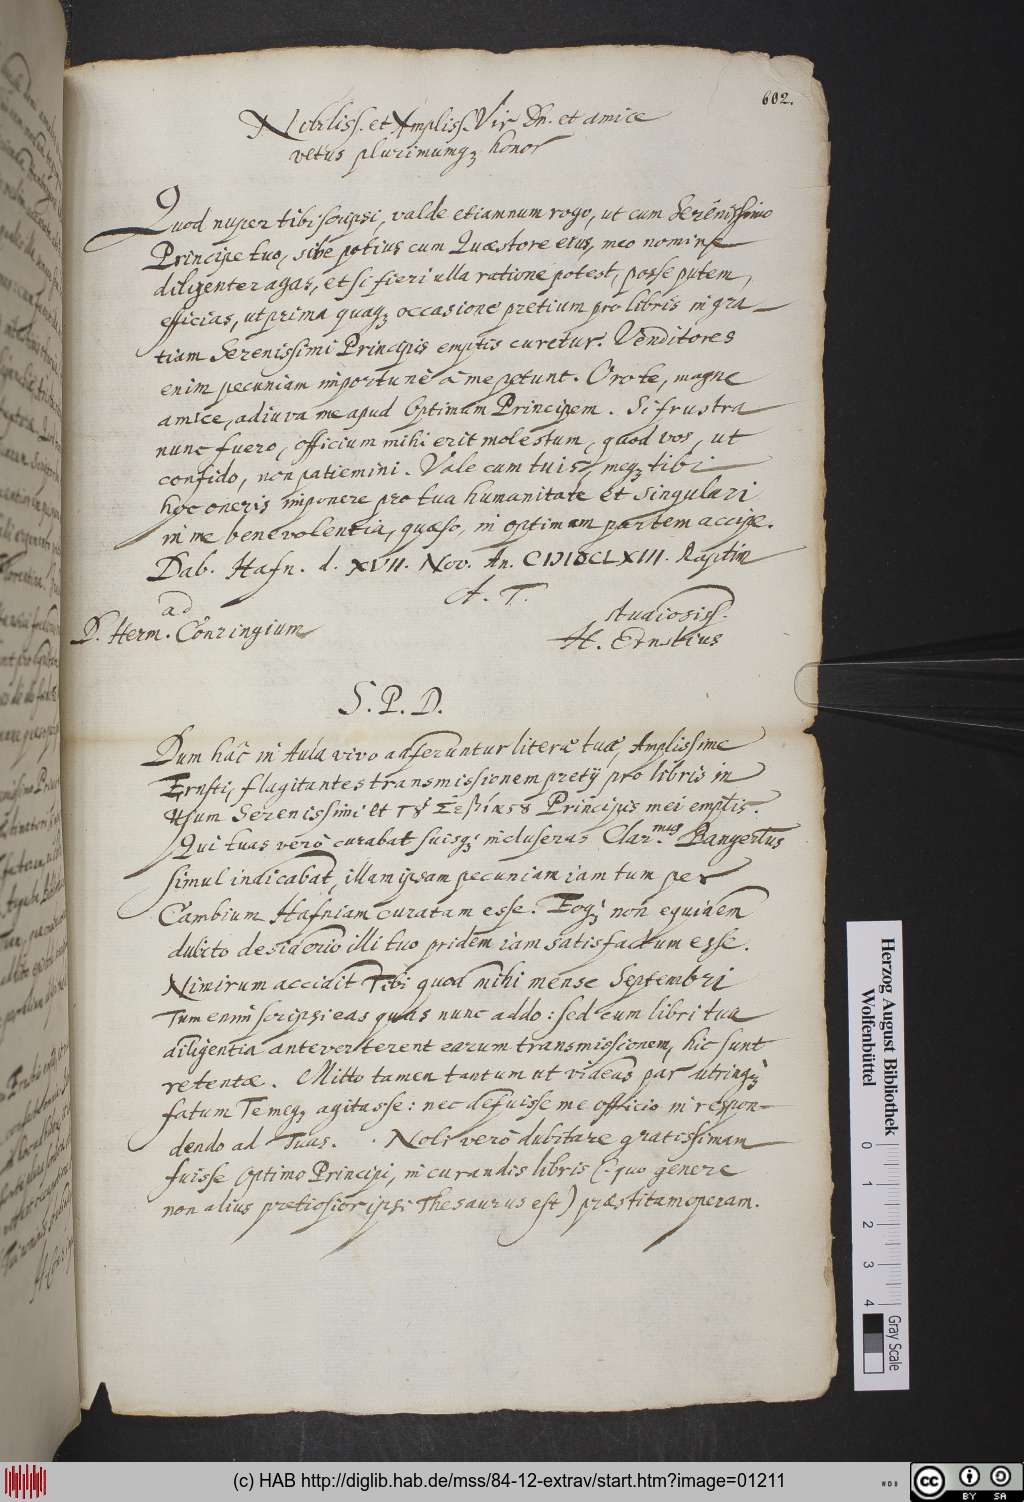 602.
Nobiliss. et Ampliss. Vir Dn. et amice
vetus plurimumq; honor
Quod nuper tibi scripsi, valde etiamnum rogo, ut cum Serenissimo
Principe tuo, sive potius cum Quæstore eius, meo nomine
diligenter agas, et si fieri ulla ratione potest, posse putem,
efficias, ut prima quaq; occasione pretium pro libris in gra-
tiam Serenissimi Principis emptis curetur. Venditores
enim pecuniam importunè à me petunt. Oro te, magne
amice, adiuva me apud Optimum Principem. Si frustra
nunc fuero, officium mihi erit molestum, quod vos, ut
confido, non patiemini. Vale cum tuis, meq; tibi
hoc oneris imponere pro tua humanitate et singulari
in me benevolentia, quæso, in optimam partem accipe.
Dab. Hafn. d. XVII. Nov. An. CIƆIƆCLXIII. Raptim
A. T.
ad
studiosiss.
D. Herm. Conringium
H. Ernstius
S. P. D.
Dum hac in Aula vivo adferuntur literæ tuæ, Amplissime
Ernsti, flagitantes transmissionem pretij pro libris in
usum Serenissimi et τȣ Σεβίκȣ Principis mei emptis.
Qui tuas verò curabat suisq; incluseras Clar.mus
simul indicabat, illam ipsam pecuniam iam tum per
Cambium Hafniam curatam esse. Eoq; non equidem
dubito desiderio illi tuo pridem iam satisfactum esse.
Nimirum accidit Tibi quod mihi mense Septembri
Tum enim scripsi eas quas nunc addo: sed cum libri tua
diligentia anteverterent earum transmissionem, hic sunt
retentæ. Mitto tamen tantum ut videas par utrinq;
fatum Te meq; agitasse: nec defuisse me officio in respon-
dendo ad Tuas. Noli verò dubitare gratissimam
fuisse Optimo Principi, in curandis libris (quo genere
non alius pretiosior ipsi Thesaurus est) præstitam operam.
Herzog August Bibliothek
Wolfenbüttel
0 1 2 3 4
Gray Scale
(c) HAB http://diglib.hab.de/mss/84-12-extrav/start.htm?image=01211
cc BY SA